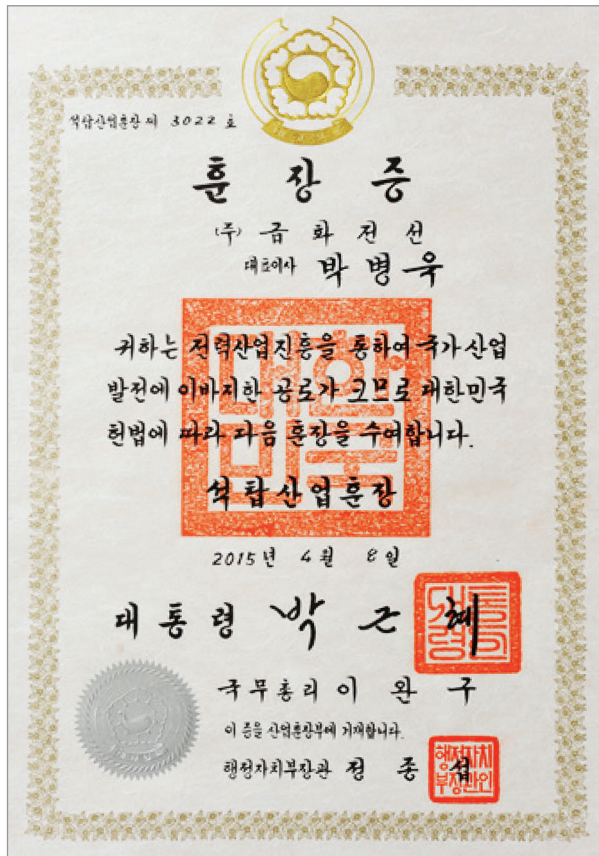 석탑산업훈장 제 3022 호
훈장증
(주) 금화전선
대표이사 박병욱
귀하는 전력산업진흥을 통하여 국가산업
발전에 이바지한 공로가 크므로 대한민국
헌법에 따라 다음 훈장을 수여합니다.
석탑산업훈장
2015년 4월 8일
대통령 박근혜
국무총리 이완구
이 증을 산업훈장부에 기재합니다.
행정자치부장관 정종섭
행정자치
부장관인